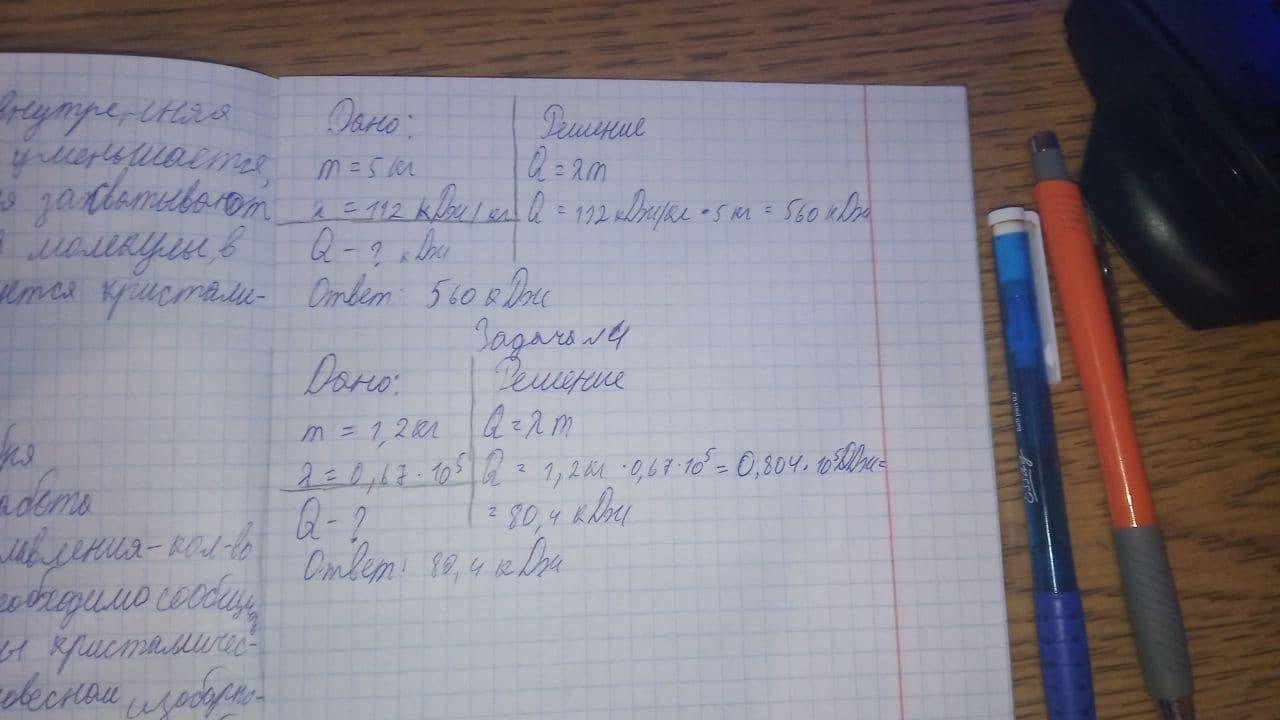 внутренняя
уменьшается,
захватывают
молекулы, в
ется кристали-
бря
абота
лавления - кол-во
еобходимо сообщить
ы кристаличес-
овесном изобарно-
Дано:
m = 5 кг
λ = 112 кДж/кг
Q - ? кДж
Решение
Q = λm
Q = 112 кДж/кг · 5 кг = 560 кДж
Ответ: 560 кДж
Задача №4
Дано:
m = 1,2 кг
λ = 0,67 · 10⁵
Q - ?
Решение
Q = λm
Q = 1,2 кг · 0,67 · 10⁵ = 0,804 · 10⁵ Дж =
= 80,4 кДж
Ответ: 80,4 кДж